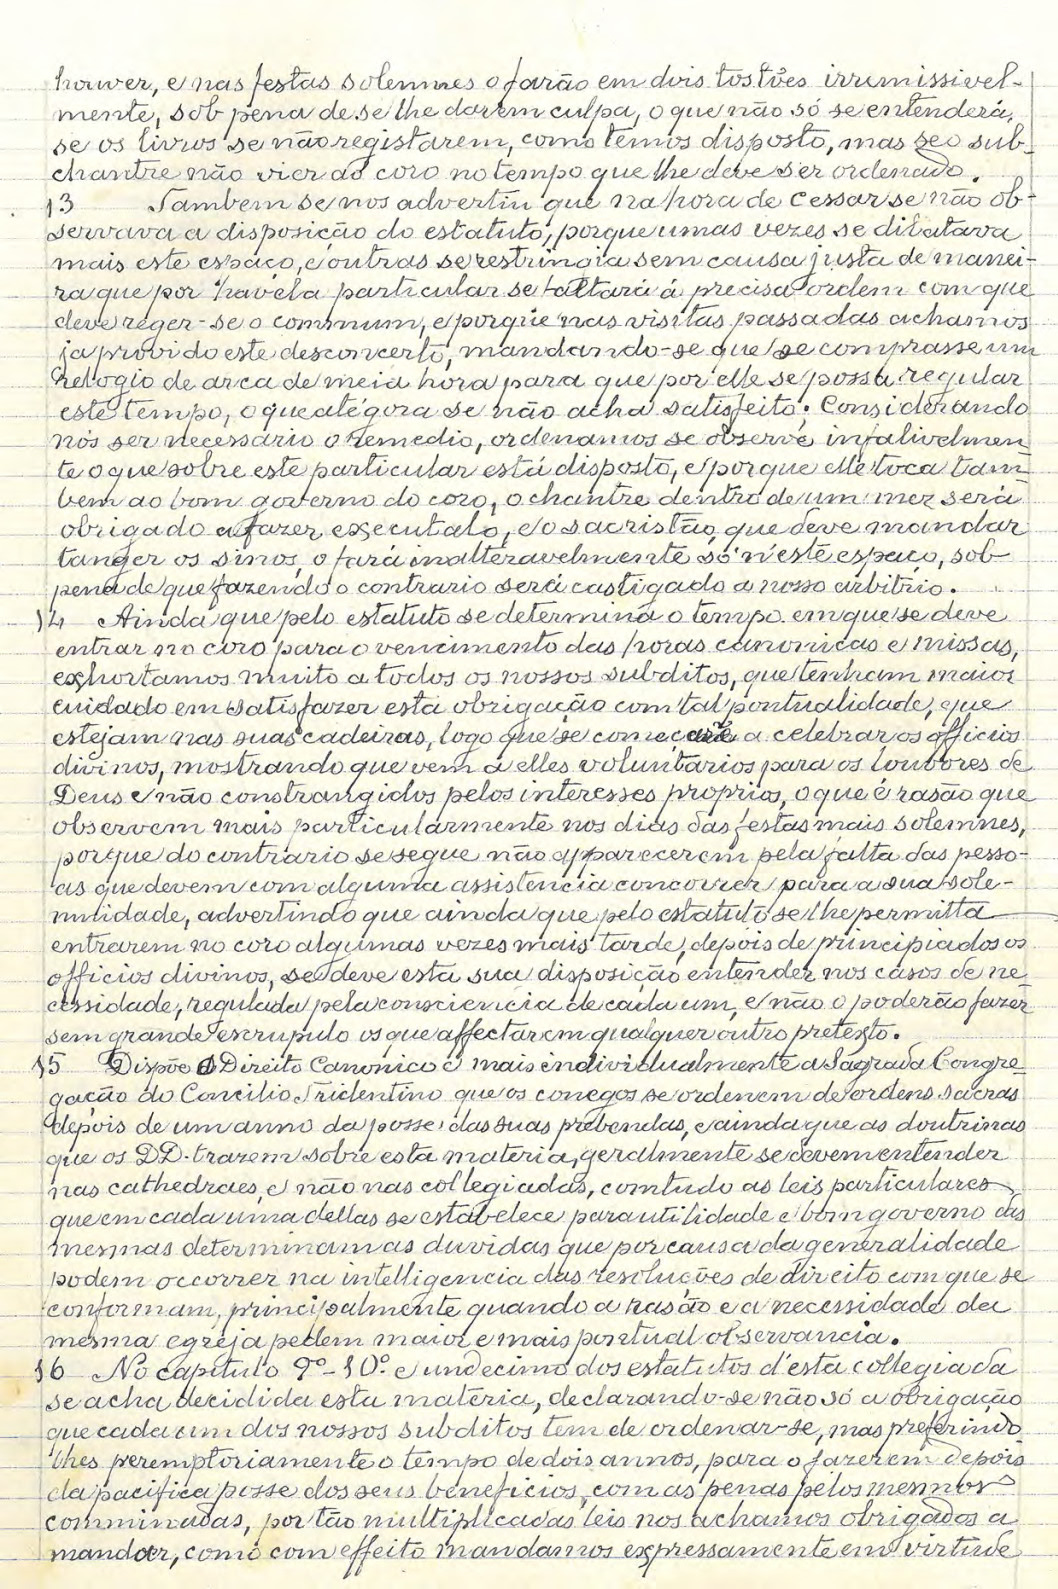 houver, e nas festas solemnes o farão em dois tostões irrimissivel-
mente, sob pena de se lhe darem culpa, o que não só se entenderá,
se os livros se não registarem, como temos disposto, mas se o sub-
chantre não vier ao coro no tempo que lhe deve ser ordenado.
13 Tambem se nos advertiu que na hora de cessar se não ob-
servava a disposição do estatuto, porque umas vezes se dilatava
mais este espaço, e outras se restringia sem causa justa de manei-
ra que por havela particular se faltará á precisa ordem com que
deve reger-se o commum, e porque nas visitas passadas achamos
ja provido este desconcerto, mandando-se que se comprasse um
relogio de arca de meia hora para que por elle se possa regular
este tempo, o que atégora se não acha satisfeito: Considerando
nós ser necessario o remedio, ordenamos se observe infalivelmen-
te o que sobre este particular está disposto, e porque elle toca tam-
bem ao bom governo do coro, o chantre dentro de um mez será
obrigado a fazer executalo, e o sacristão, que deve mandar
tanger os sinos, o fará inalteravelmente só n'este espaço, sob
pena de que fazendo o contrario será castigado a nosso arbitrio.
14 Ainda que pelo estatuto se determina o tempo em que se deve
entrar no coro para o vencimento das horas canonicas e missas,
exhortamos muito a todos os nossos subditos, que tenham maior
cuidado em satisfazer esta obrigação com tal pontualidade, que
estejam nas suas cadeiras, logo que se começarẽ a celebrar os officios
divinos, mostrando que vem a elles voluntarios para os louvores de
Deus e não constrangidos pelos interesses proprios, o que é rasão que
observem mais particularmente nos dias das festas mais solemnes,
porque do contrario se segue não apparecerem pela falta das pesso-
as que devem com alguma assistencia concorrer para a sua sole-
mnidade, advertindo que ainda que pelo estatuto se lhe permitta
entrarem no coro algumas vezes mais tarde, depois de principiados os
officios divinos, se deve esta sua disposição entender nos casos de ne
cessidade, regulada pela consciencia de cada um, e não o poderão fazer
sem grande escrupulo os que affectarem qualquer outro pretexto.
15 Dispõe o Direito Canonico e mais individualmente a Sagrada Congre-
gação do Concilio Tridentino que os conegos se ordenem de ordens sacras
depois de um anno da posse das suas prebendas, e ainda que as doutrinas
que os DD. trazem sobre esta materia, geralmente se devem entender
nas cathedraes, e não nas collegiadas, comtudo as leis particulares
que em cada uma dellas se estabelece para utilidade e bom governo das
mesmas determinam as duvidas que por causa da generalidade
podem occorrer na intelligencia das resoluções de direito com que se
conformam, principalmente quando a rasão e a necessidade da
mesma egreja pedem maior e mais pontual observancia.
16 No capitulo 9º - 10º. e undecimo dos estatutos d'esta collegiada
se acha decidida esta materia, declarando-se não só a obrigação
que cada um dos nossos subditos tem de ordenar-se, mas preferindo
lhes peremptoriamente o tempo de dois annos, para o fazerem depois
da pacifica posse dos seus beneficios, com as penas pelos mesmos
comminadas, por tão multiplicadas leis nos achamos obrigados a
mandar, como com effeito mandamos expressamente em virtude